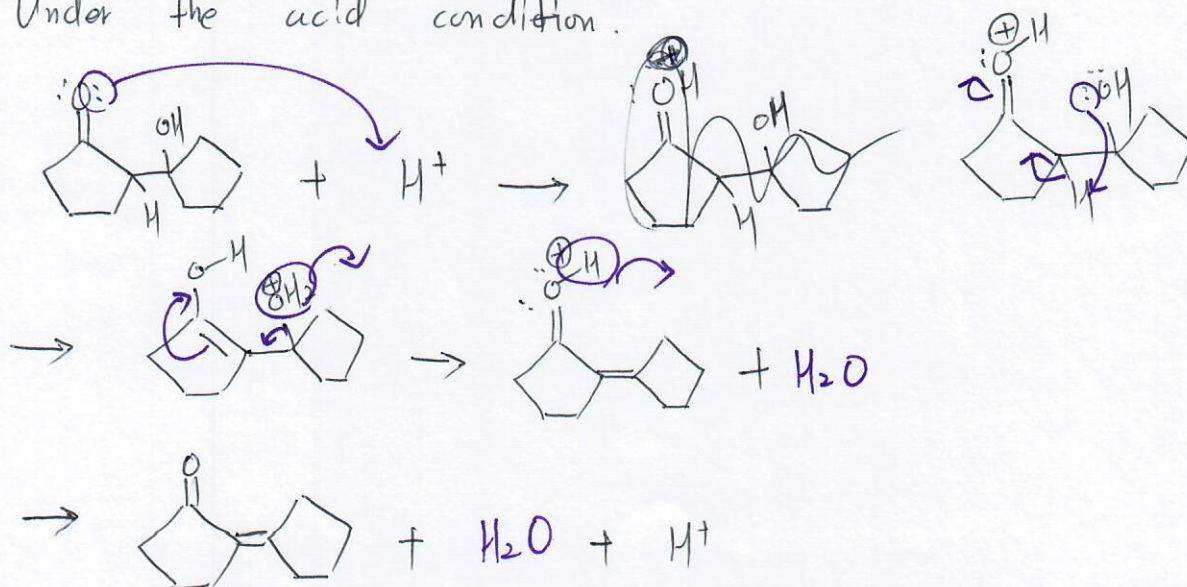 Under the acid condition.
O OH H + H⁺ → O H ⊕ OH H ⊕ O H OH H
→ O H ⊕ OH₂ → ⊕ O H + H₂O
→ O + H₂O + H⁺